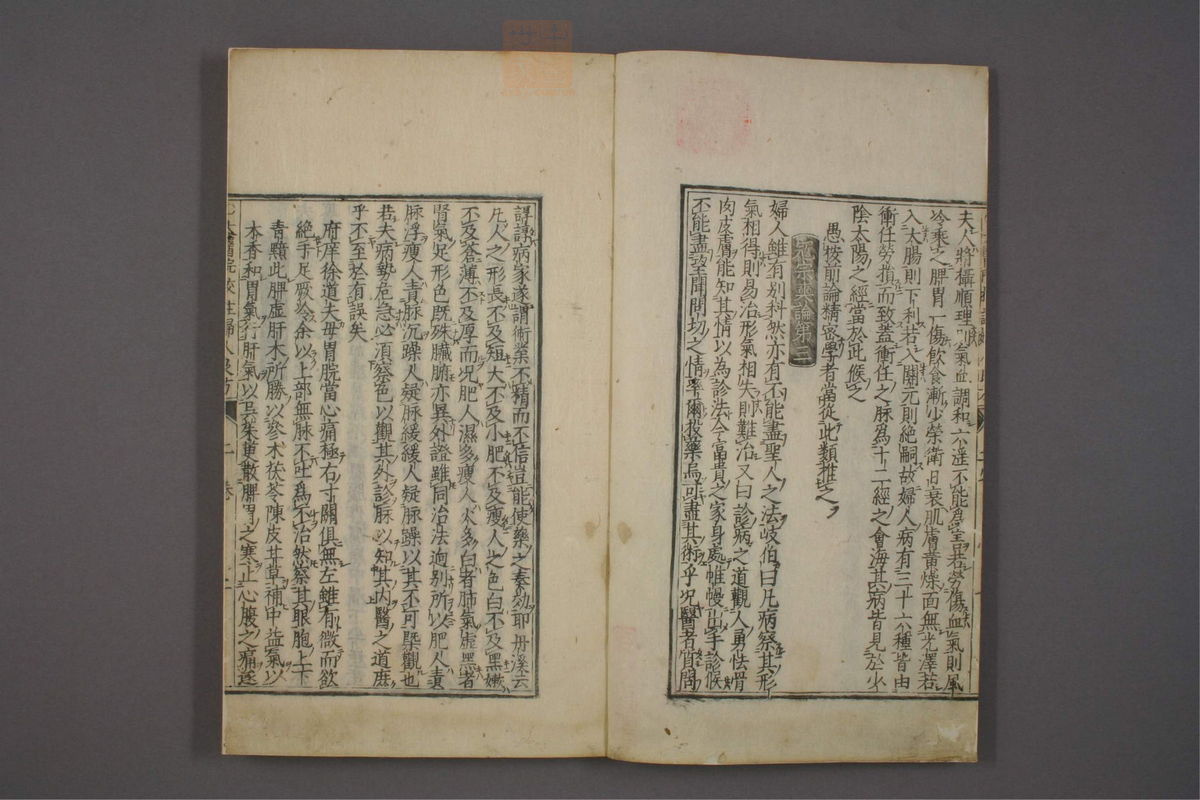 夫人將攝順理則氣血調和六淫不能為害若勞傷血氣則風
冷乘之脾胃一傷飲食漸少榮衛日衰肌膚黃燥面無光澤若
入大腸則下利若入關元則絕嗣故婦人病有三十六種皆由
衝任勞損而致蓋衝任之脉為十二經之會海其病皆見於少
陰太陽之經當於此候之
愚按前論精密學者當從此類推之
論第三
婦人雖有別科然亦有不能盡聖人之法岐伯曰凡病察其形
氣相得則易治形氣相失則難治又曰診病之道觀人勇怯骨
肉皮膚能知其情以為診法今富貴之家身處帷幔出手診候
不能盡望聞問切之情草爾投藥烏可盡其術乎况醫者質問
諄諄病家遂謂術業不精而不信豈能使藥之奏効耶丹溪云
凡人之形長不及短大不及小肥不及瘦人之色白不及黑嫩
不及蒼薄不及厚而况肥人濕多瘦人火多白者肺氣虛黑者
腎氣足形色既殊臟腑亦異外證雖同治法逈別所以肥人責
脉浮瘦人責脉沉躁人疑脉緩緩人疑脉躁以其不可槩觀也
若夫病勢危急必須察色以觀其外診脉以知其内醫之道庶
乎不至於有誤矣
府庠徐道夫母胃脘當心痛極右寸關俱無左雖有微而欲
絶手足厥冷余以上部無脉不吐爲不治然察其眼胞上下
青黯此脾虚肝木所勝以參术茯苓陳皮甘草補中益氣以
木香和胃氣行肝氣以吳茱萸散脾胃之寒止心腹之痛遂